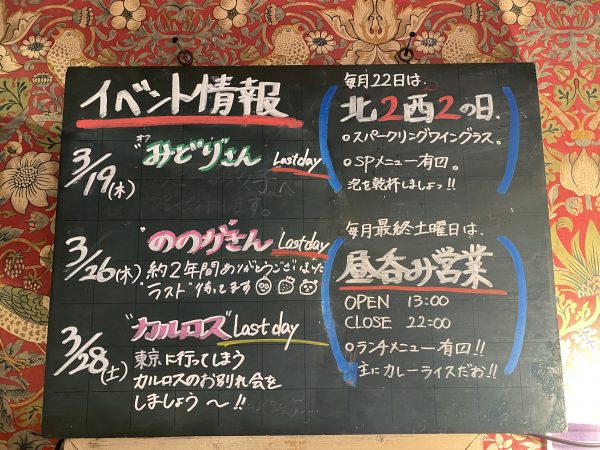 イベント情報
3/19(木)
オフ
"みどりさん
Last day
3/26(木)
"ののかさん
Last day
約2年間ありがとうございました
"ラスト"待ってます
3/28(土)
"カルロス"
Last day
東京に行ってしまう
カルロスのお別れ会を
しましょう〜!!
毎月22日は、
北2西2の日、
スパークリングワイングラス。
SPメニュー有り。
泡を乾杯しましょっ!!
毎月最終土曜日は、
昼呑み営業
OPEN 13:00
CLOSE 22:00
ランチメニュー有り!!
主にカレーライスだお!!